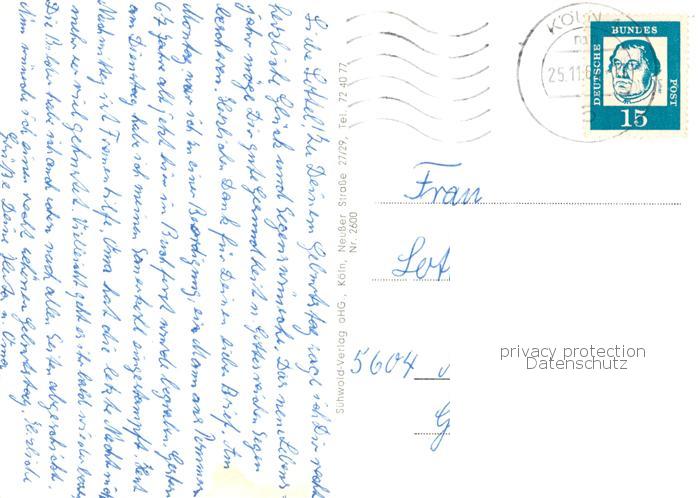 Liebe Lottel! Zu Deinem Geburtstag sage ich Dir recht
herzliche Glück und Segenswünsche. Das neue Lebens-
jahr möge Dir gute Gesundheit u. Gottes reichen Segen
bescheren. Herzlichen Dank für Deinen lieben Brief. Am
Montag war ich zu einer Beerdigung, ein Mann aus
67 Jahre alt jetzt hier in Buchforst wurde begraben. Gestern
am Dienstag habe ich meinen Sauerkohl eingestampft. Heut
Nachmittag ist Frauenhilfe. Oma hat die letzte Nacht
mehr so viel gehustet. Vielleicht geht es ihr bald wieder besser
Die habe ich auch schon nach allen Seiten abgeschickt.
Nun wünsche ich einen recht schönen Geburtstag. Herzliche
Grüße Deine u. Oma
Sühwold-Verlag oHG., Köln, Neußer Straße 27/29, Tel. 72 40 77
Nr. 2600
KÖLN
25.11.6
DEUTSCHE BUNDES POST
15
Frau
Lot
5604
G
privacy protection
Datenschutz